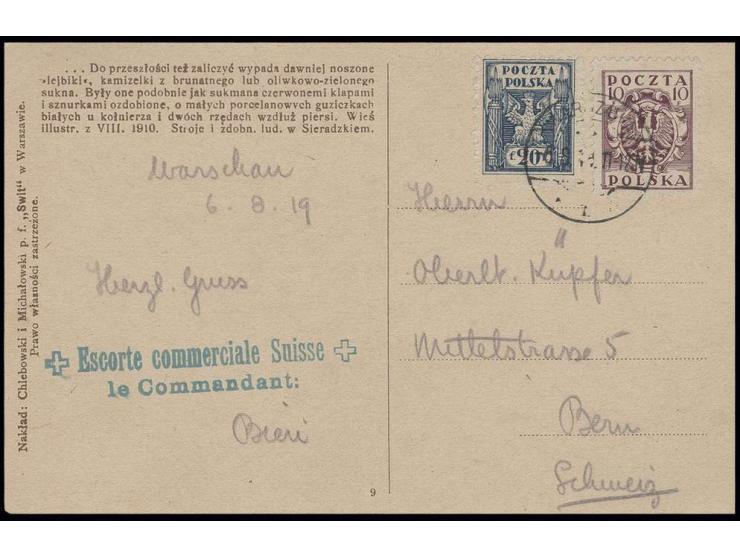 . . . Do przeszłości też zaliczyć wypada dawniej noszone
»lejbiki«, kamizelki z brunatnego lub oliwkowo-zielonego
sukna. Były one podobnie jak sukmana czerwonemi klapami
i sznurkami ozdobione, o małych porcelanowych guziczkach
białych u kołnierza i dwóch rzędach wzdłuż piersi. Wieś
illustr. z VIII. 1910. Stroje i zdobn. lud. w Sieradzkiem.
Nakład: Chlebowski i Michałowski p. f. „Swit“ w Warszawie.
Prawo własności zastrzeżone.
Warschau
6. 8. 19
Herzl. Gruss
Escorte commerciale Suisse
le Commandant:
Bieri
9
POCZTA
POLSKA
20
10 POCZTA 10
POLSKA
Herrn
Oberlt. Küpfer
Mittelstrasse 5
Bern
Schweiz